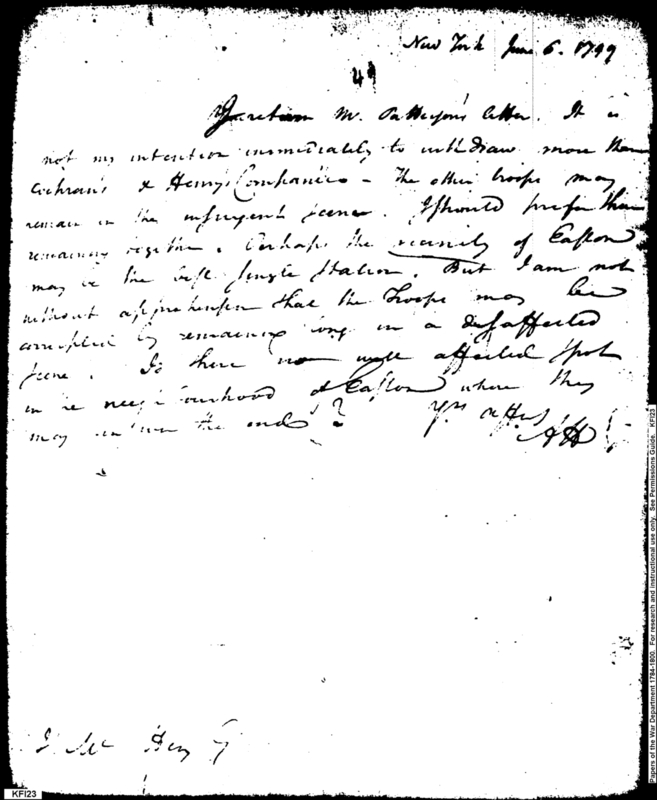 New York June 6. 1799
49
I return Mr. Patterson's letter. It is
not my intention immediately to withdraw more than
Cochran's & Henry's Companies - The other troops may
remain in the insurgent scene. I should prefer their
remaining together. Perhaps the vicinity of Easton
may be the best single station. But I am not
without apprehension that the troops may be
corrupted by remaining long in a disaffected
scene. Is there no well affected spot
in the neighbourhood of Easton where they
may answer the end?
Yrs
AH
J. McHenry
KFI23
Papers of the War Department 1784-1800. For research and instructional use only. See Permissions Guide. KFI23